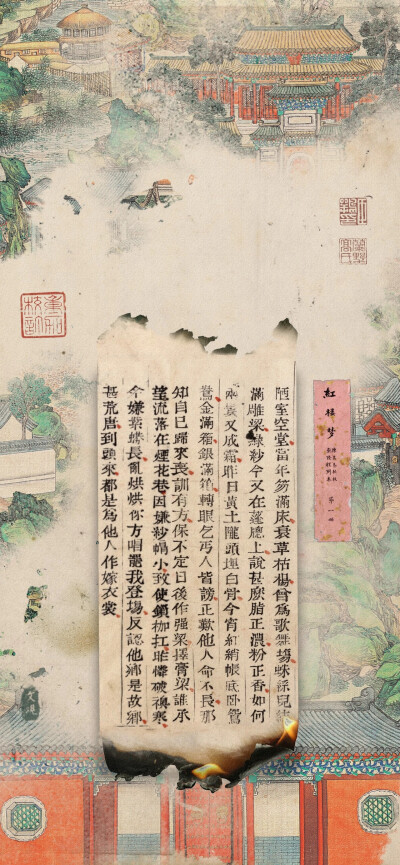 紅樓夢
第一回
陋室空堂當年笏滿床衰草枯楊曾為歌舞場蛛絲兒結
滿雕梁綠紗今又在蓬牕上說甚麼脂正濃粉正香如何
兩鬢又成霜昨日黃土隴頭埋白骨今宵紅綃帳底臥鴛
鴦金滿箱銀滿箱轉眼乞丐人皆謗正歎他人命不長那
知自已歸來喪訓有方保不定日後作强梁擇膏粱誰承
望流落在煙花巷因嫌紗帽小致使鎖枷扛昨憐破襖寒
今嫌紫蟒長亂烘烘你方唱罷我登場反認他鄉是故鄉
甚荒唐到頭來都是為他人作嫁衣裳